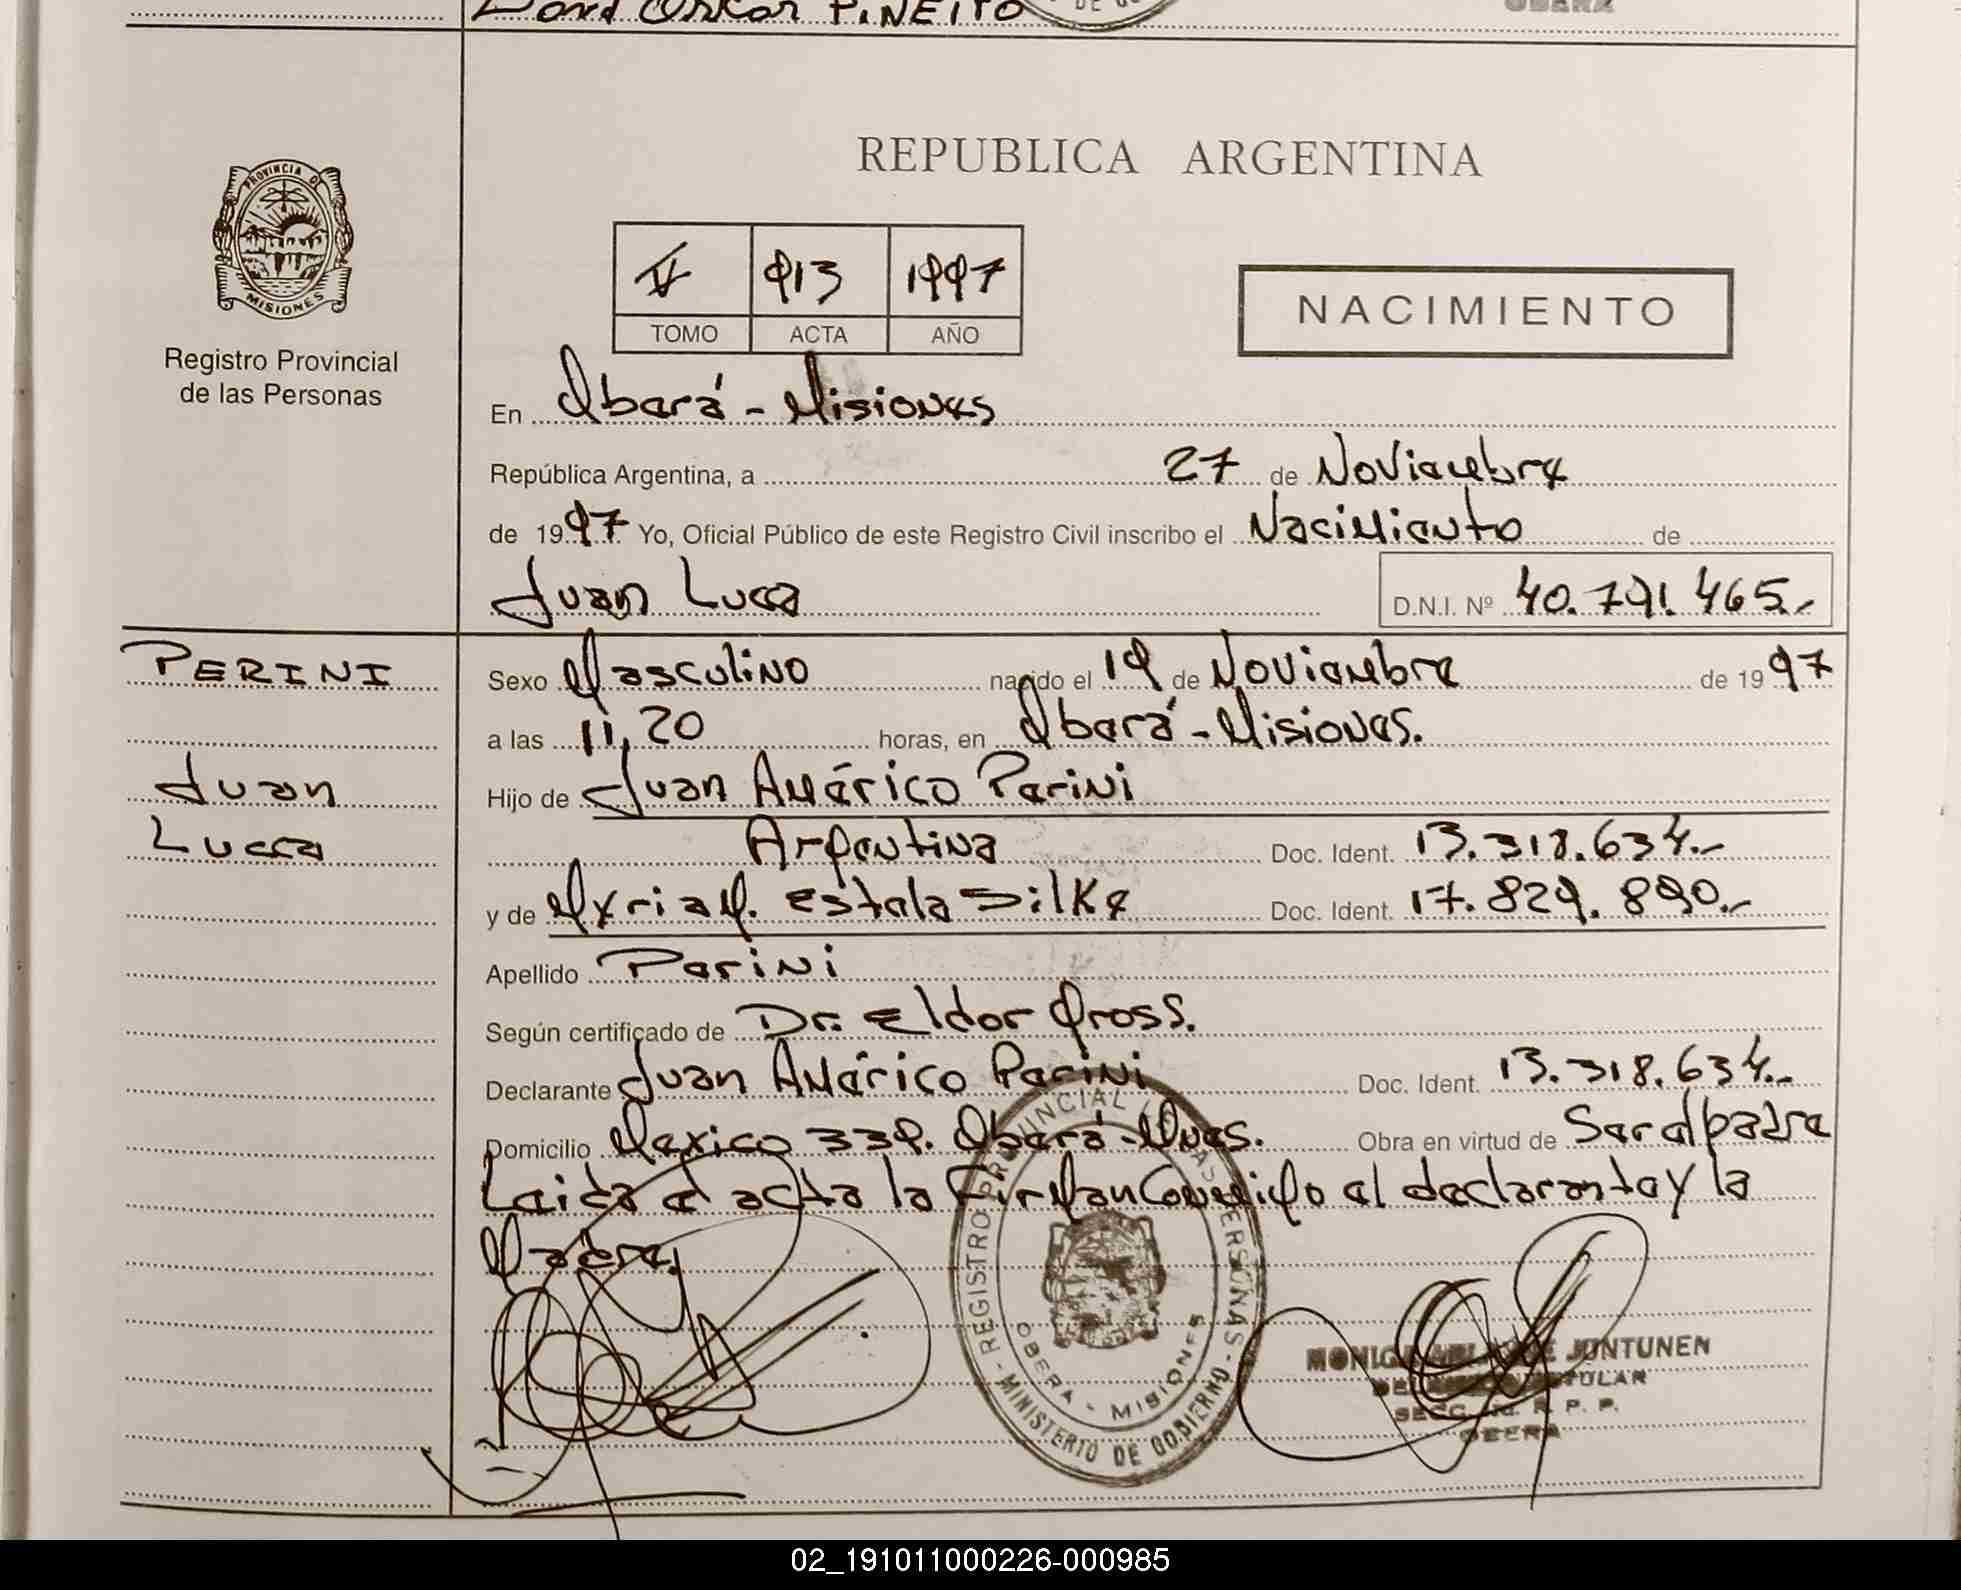 PIÑEIRO
REPUBLICA ARGENTINA
PROVINCIA DE
MISIONES
Registro Provincial
de las Personas
913 1997
TOMO ACTA AÑO
NACIMIENTO
En Oberá - Misiones
República Argentina, a 27 de Noviembre
de 1997 Yo, Oficial Público de este Registro Civil inscribo el Nacimiento de
Juan Lucca D.N.I. Nº 40.791.465.-
PERINI
Juan
Lucca
Sexo Masculino nacido el 19 de Noviembre de 1997
a las 11,20 horas, en Oberá - Misiones.
Hijo de Juan Américo Perini
Argentina Doc. Ident. 13.318.634.-
y de Myriam Estela Dilke Doc. Ident. 17.829.890.-
Apellido Perini
Según certificado de Dr. Eldor Gross.
Declarante Juan Américo Perini Doc. Ident. 13.318.634.-
Domicilio Mexico 339. Oberá - Mnes. Obra en virtud de Ser el padre
Leida el acta la Firman Conmigo el declarante y la
Madre.
REGISTRO PROVINCIAL DE LAS PERSONAS - MINISTERIO DE GOBIERNO -
OBERA - MISIONES
JUNTUNEN
R. P. P.
OBERA
02_191011000226-000985